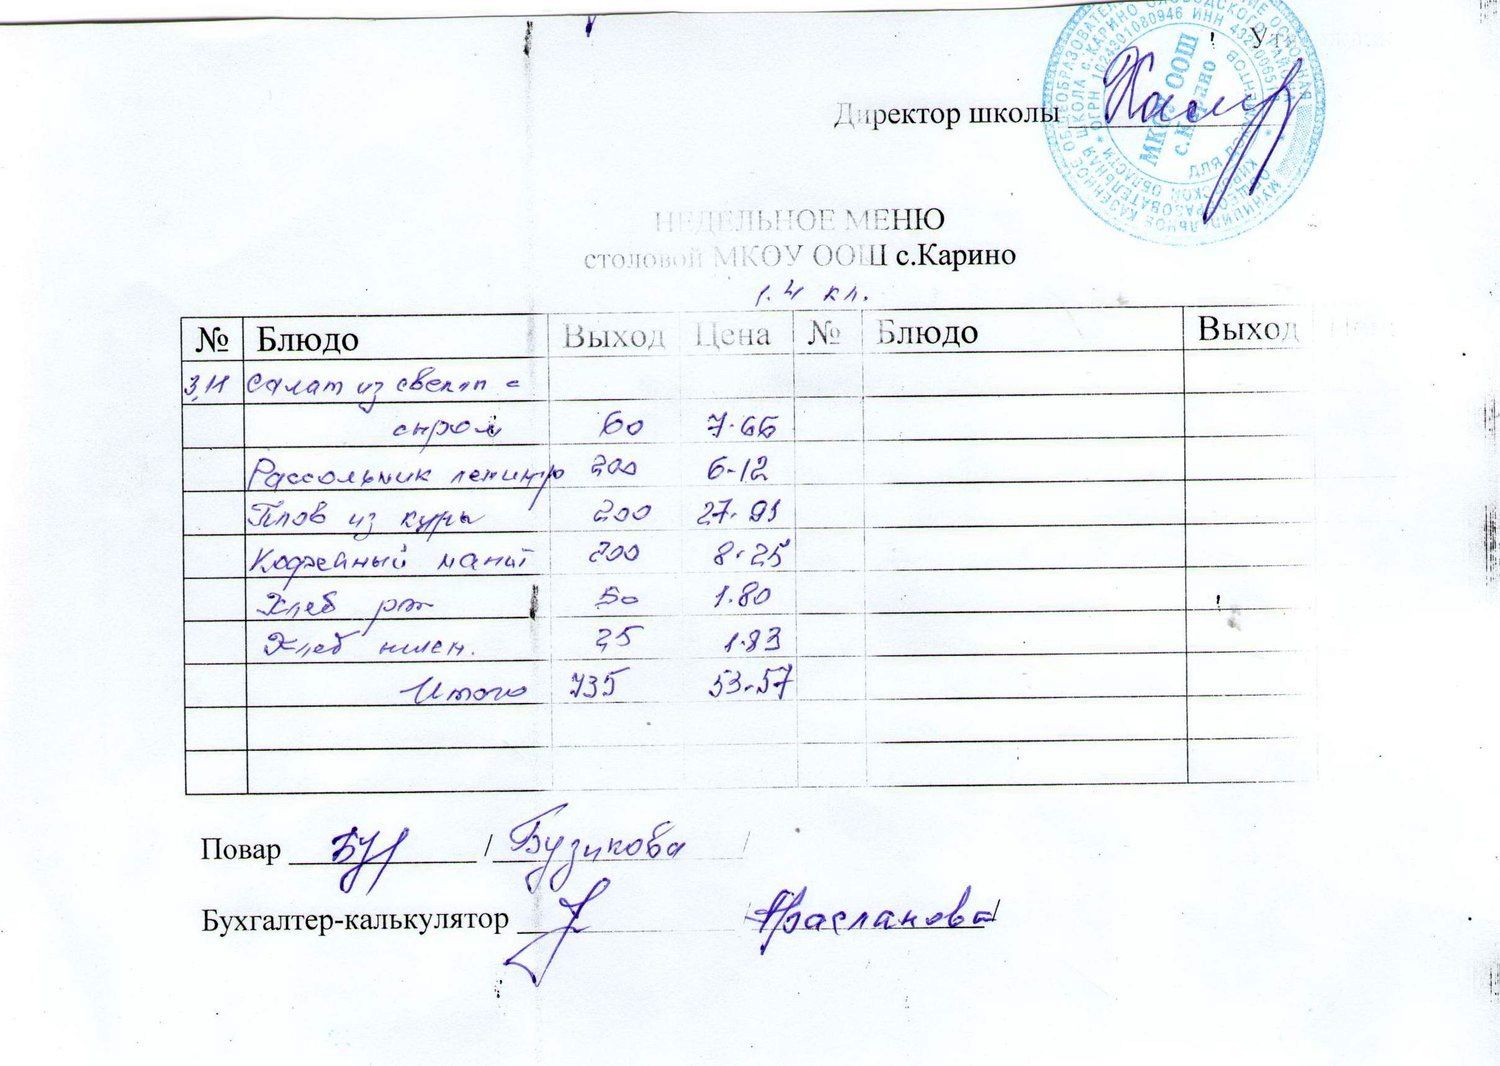 Ут
Директор школы
МКОУ ООШ
с.Карино
НЕДЕЛЬНОЕ МЕНЮ
столовой МКОУ ООШ с.Карино
1-4 кл.
№ Блюдо Выход Цена № Блюдо Выход
3.11 Салат из свеклы с
сыром 60 7-66
Рассольник ленингр 200 6-12
Плов из куры 200 27-91
Кофейный напит 200 8-25
Хлеб рж 50 1.80
Хлеб пшен. 25 1-83
Итого 735 53-57
Повар / Бузикова /
Бухгалтер-калькулятор / Арасланова /